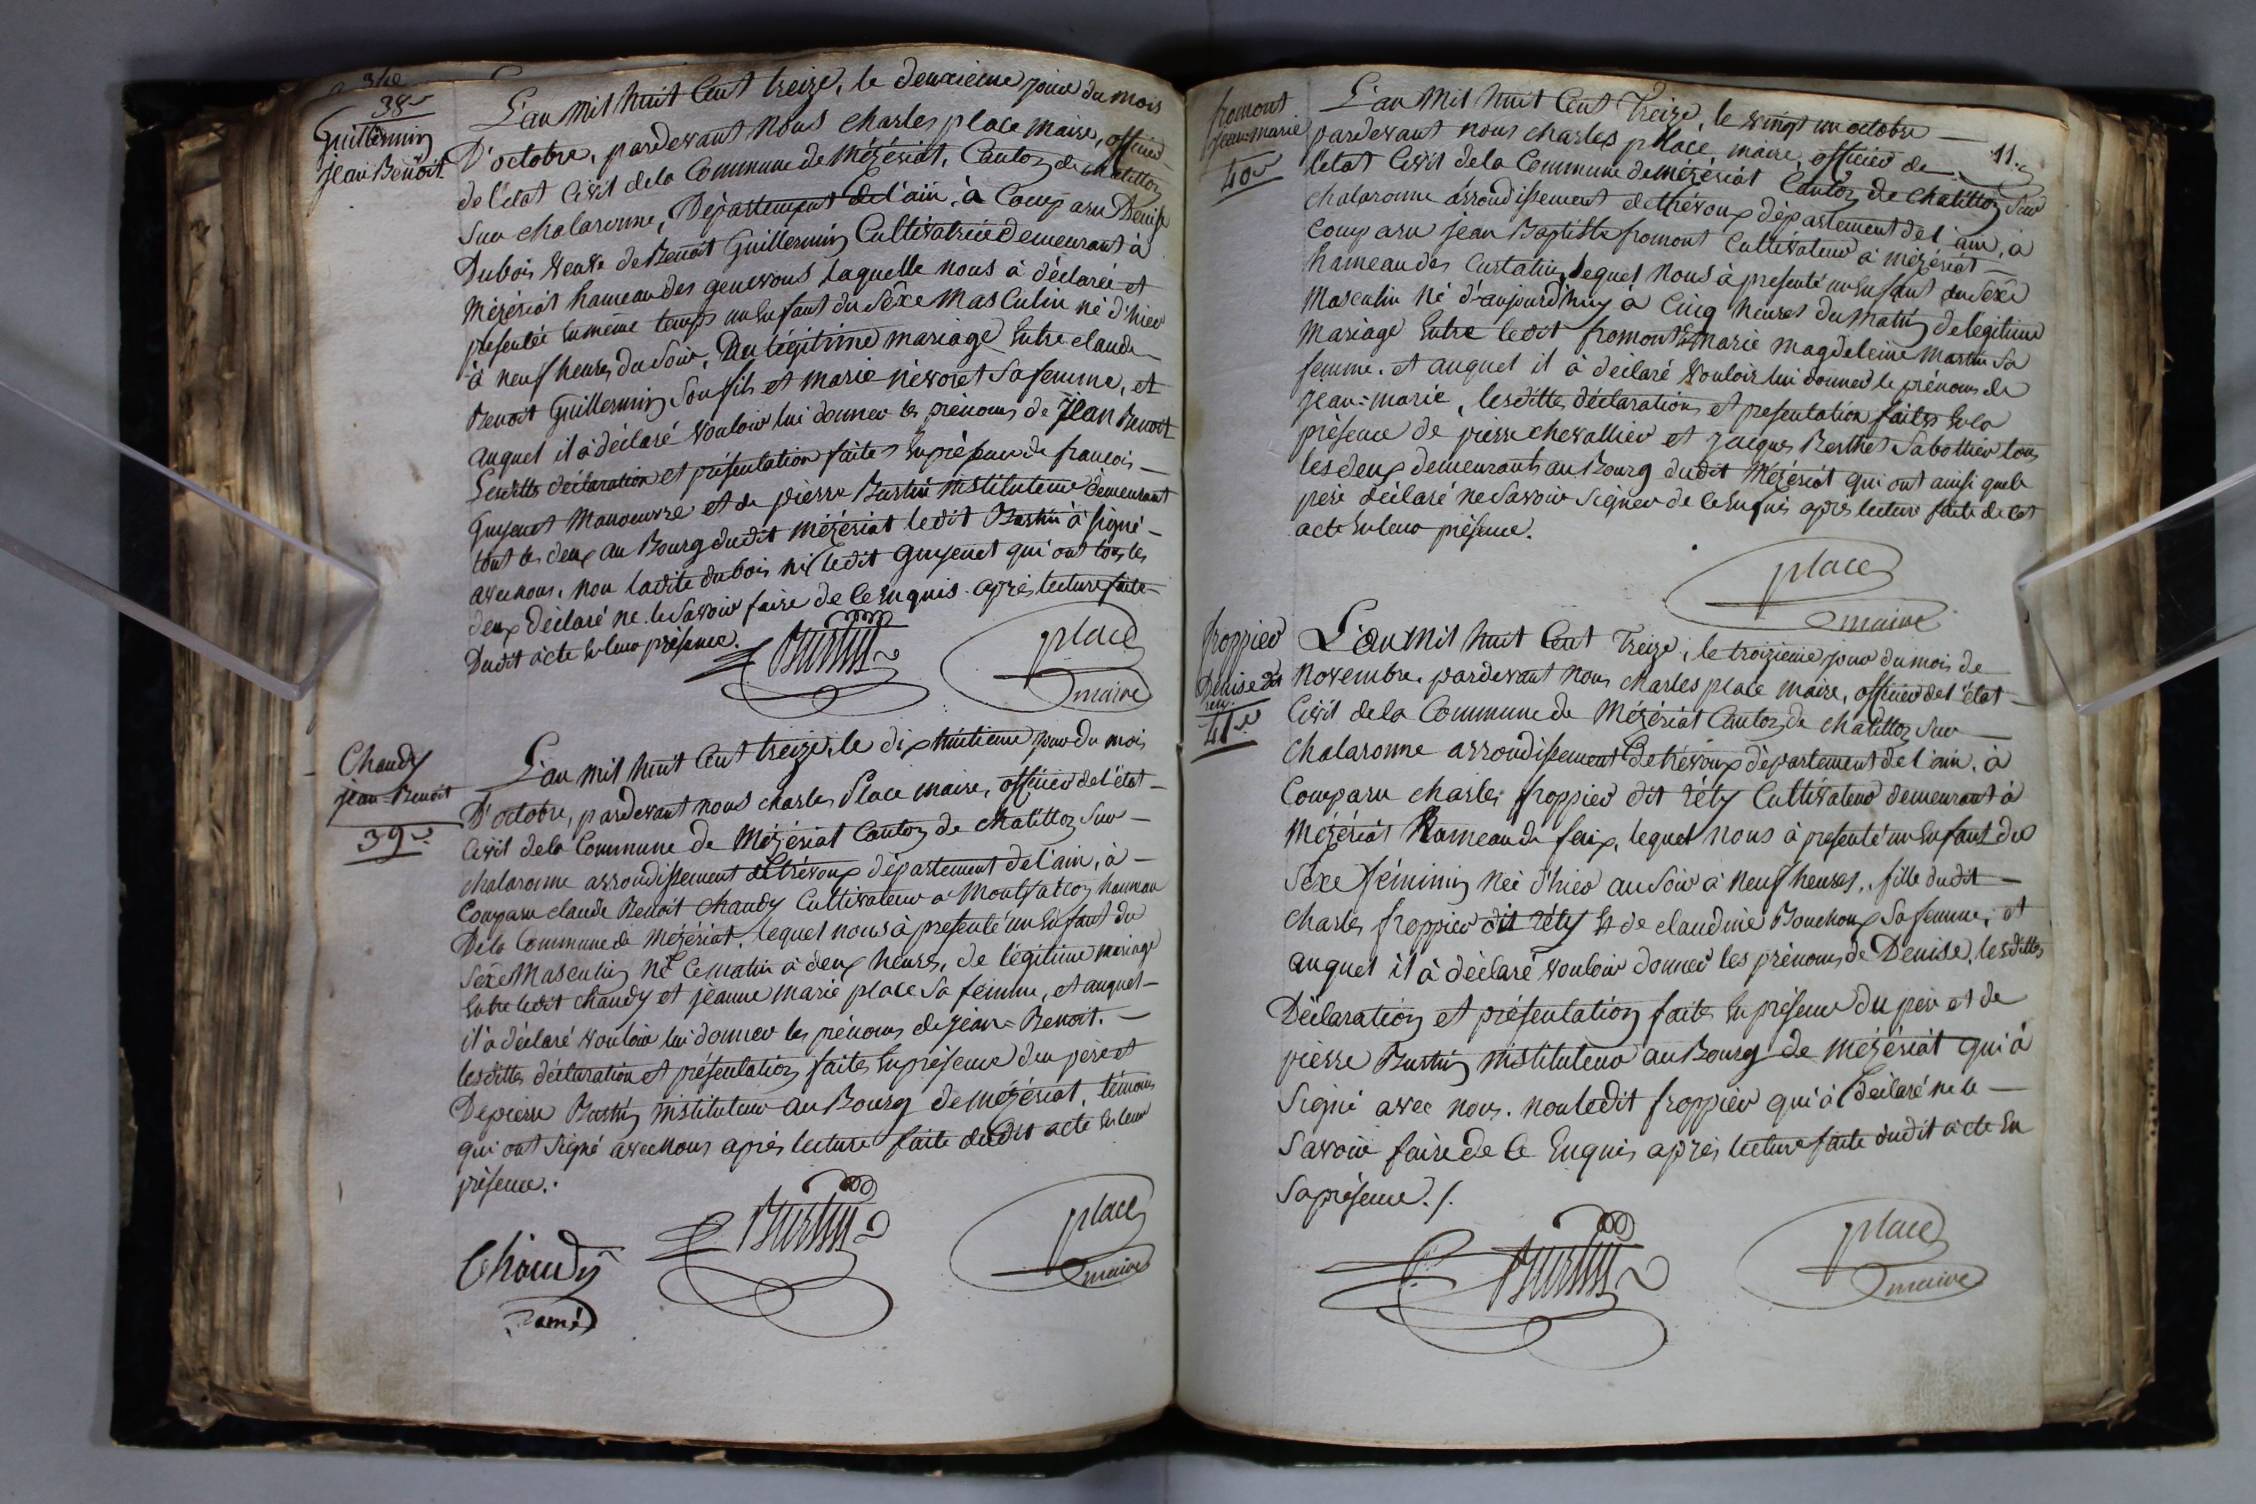 38e
Guillermin
Jean Benoit
L'an mil huit Cent treize, le deuxieme jour du mois
D'octobre, pardevant nous charles place maire, officier
de l'état Civil de la Commune de Mézériat, Canton de chatillon
sur chalaronne, Département de l'ain, à Comparu Denise
Dubois veuve de Benoit Guillermin Cultivatrice demeurant à
Mézériat hameau des genevous laquelle nous à déclarée et
presentée en même temps un Enfant du Sêxe Masculin né d'hier
à neuf heures du Soir, Du légitime mariage Entre claude
Benoit Guillermin Son fils et marie névoret Sa femme, et
auquel il à déclaré vouloir lui donner les prénoms de Jean Benoit
Lesdittes déclaration et présentation faites En présence de francois
Guyenet Manoeuvre et de pierre Burtin instituteur demeurant
tout les deux au Bourg dudit Mézériat ledit Burtin à Signé
avec nous, non ladite dubois ni ledit Guyenet qui ont tous les
deux déclaré ne le Savoir faire de ce Enquis après lecture faite
Dudit acte En leur présence.
Burtin
place
maire
Chaudy
jean-Benoit
39e
L'an mil huit Cent treize, le dixhuitieme jour du mois
D'octobre, pardevant nous charles Place maire, officier de l'état
Civil de la Commune de Mézériat Canton de chatillon Sur
chalaronne arrondissement de trévoux département de l'ain, à
Comparu claude Benoit chaudy Cultivateur à Montfalcon hameau
De la Commune de Mézériat, lequel nous à presenté un Enfant du
Sêxe Masculin né Ce matin à deux heures, de légitime mariage
Entre ledit chaudy et jeanne marie place Sa femme, et auquel
il à déclaré vouloir lui donner les prénoms de jean-Benoit.
lesdittes déclaration et présentation faites En présence du père et
De pierre Burtin instituteur au Bourg de Mézériat, témoins
qui ont Signé avec nous après lecture faite dudit acte En leur
présence.
Chaudy
Burtin
place
maire
fromont
jean=marie
40e
11.
L'an Mil huit Cent Treize, le vingt un octobre
pardevant nous charles place maire, officier de
l'état Civil de la Commune de Mézériat Canton de Chatillon Sur
chalaronne arrondissement de trévoux département de l'ain, à
Comparu jean Baptiste fromont Cultivateur à Mézériat
hameau des Curtatin, lequel nous à presenté un Enfant du Sexe
Masculin né d'aujourd'huy à Cinq heures du Matin de légitime
Mariage Entre ledit fromont Et marie magdeleine Martin Sa
femme. et auquel il à déclaré vouloir lui donner le prénoms de
jean=marie, lesdittes déclaration et presentation faites En la
présence de pierre chevallier et jacques Berthet Sabottier tous
les deux demeurants au Bourg dudit Mézériat qui ont ainsi que le
père déclaré ne Savoir Signer de ce Enquis après lecture faite de Cet
acte En leur présence.
place
maire
froppier
Denise dit
rety
41e
L'an Mil huit Cent Treize, le troizieme jour du mois de
Novembre, pardevant nous charles place maire, officier de l'état
Civil de la Commune de Mézériat Canton de chatillon Sur
chalaronne arrondissement de trévoux département de l'ain, à
Comparu charles froppier dit réty Cultivateur demeurant à
Mézériat hameau du faix, lequel nous à presenté un Enfant du
Sexe féminin née d'hier au Soir à neuf heures, fille dudit
charles froppier dit réty Et de claudine Bouchoux Sa femme, et
auquel il à déclaré vouloir donner les prénoms de Denise, lesdittes
Déclaration et présentation faites En présence du père et de
pierre Burtin instituteur au Bourg de Mézériat qui à
Signé avec nous. non ledit froppier qui à déclaré ne le
Savoir faire de Ce Enquis après lecture faite dudit acte En
Sa présence./.
Burtin
place
maire